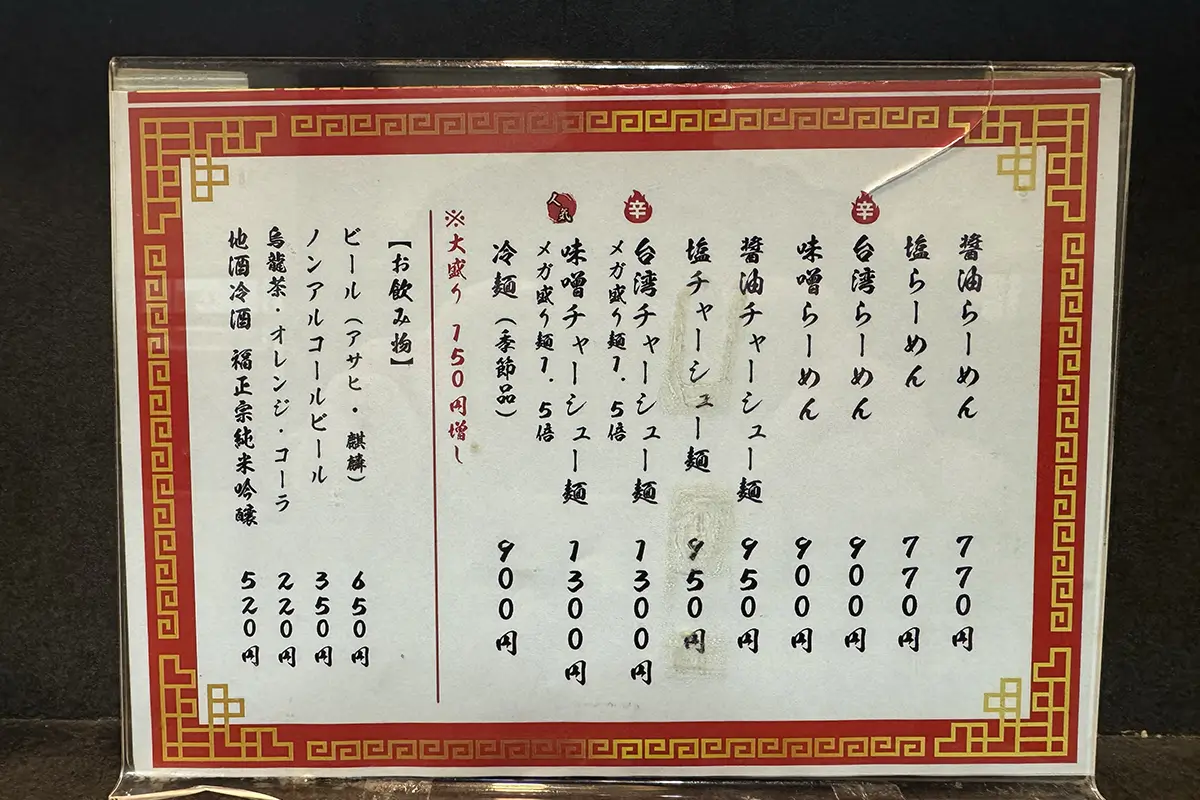 醬油らーめん 770円
塩らーめん 770円
辛
台湾らーめん 900円
味噌らーめん 900円
醬油チャーシュー麺 950円
塩チャーシュー麺 950円
辛
台湾チャーシュー麺 1300円
メガ盛り麺1.5倍
人気
味噌チャーシュー麺 1300円
メガ盛り麺1.5倍
冷麺(季節品) 900円
※大盛り 150円増し
【お飲み物】
ビール(アサヒ・麒麟) 650円
ノンアルコールビール 350円
烏龍茶・オレンジ・コーラ 220円
地酒冷酒 福正宗純米吟醸 520円